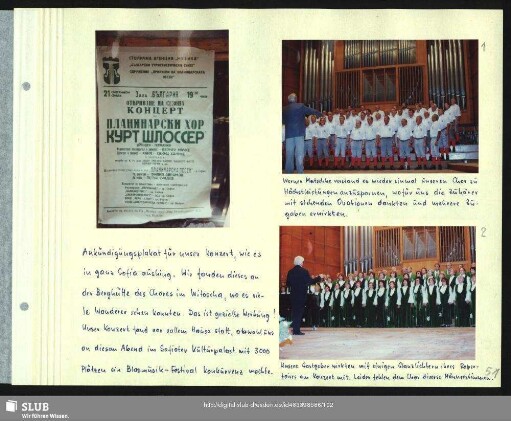 21 19
Зала БЪЛГАРИЯ
ОТКРИВАНЕ НА СЕЗОНА
КОНЦЕРТ
ПЛАНИНАРСКИ ХОР
КУРТ ШЛОССЕР
Ankündigungsplakat für unser Konzert, wie es
in ganz Sofia aushing. Wir fanden dieses an
der Berghütte des Chores im Witoscha, wo es vie-
le Wanderer sehen konnten. Das ist gezielte Werbung!
Unser Konzert fand vor vollem Hause statt, obwohl uns
an diesem Abend im Sofioter Kulturpalast mit 3000
Plätzen ein Blasmusik-Festival Konkurrenz machte.
1
Werner Matschke verstand es wieder einmal unseren Chor zu
Höchstleistungen anzuspornen, wofür uns die Zuhörer
mit stehenden Ovationen dankten und mehrere Zu-
gaben erwirkten.
2
Unsere Gastgeber wirkten mit einigen Glanzlichtern ihres Reper-
toires am Konzert mit. Leider fehlen dem Chor diverse Männerstimmen.
51
SLUB
Wir führen Wissen.